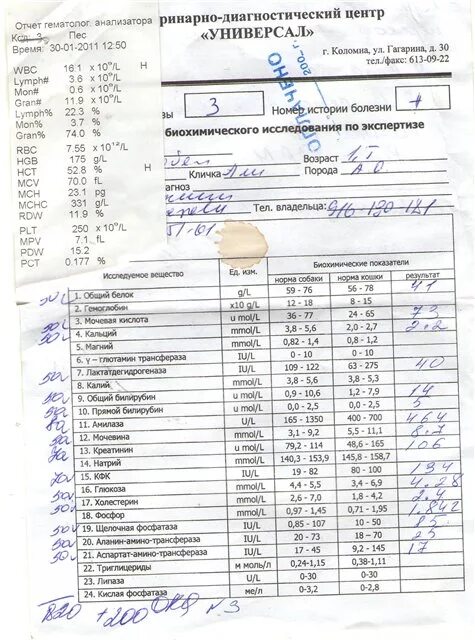 Отчет гематолог. анализатора
Код: 3 Пес
Время: 30-01-2011 12:50
WBC 16.1 x 10⁹/L H
Lymph# 3.6 x 10⁹/L
Mon# 0.6 x 10⁹/L
Gran# 11.9 x 10⁹/L
Lymph% 22.3 %
Mon% 3.7 %
Gran% 74.0 %
RBC 7.55 x 10¹²/L
HGB 175 g/L
HCT 52.8 % H
MCV 70.0 fL
MCH 23.1 pg
MCHC 331 g/L
RDW 11.9 %
PLT 250 x 10⁹/L
MPV 7.1 fL
PDW 15.2
PCT 0.177 %
ринарно-диагностический центр
«УНИВЕРСАЛ»
г. Коломна, ул. Гагарина, д. 30
тел./факс: 613-09-22
ОПЛАЧЕНО
200 г.
3 Номер истории болезни
биохимического исследования по экспертизе
Возраст
Кличка Порода
агноз
Тел. владельца:
Исследуемое вещество Ед. изм. Биохимические показатели
норма собаки норма кошки результат
1. Общий белок g/L 59 - 76 56 - 78 41
2. Гемоглобин x10 g/L 12 - 18 8 - 15
3. Мочевая кислота u mol/L 36 - 77 24 - 65 73
4. Кальций mmol/L 3,8 - 5,6 2,0 - 2,7 2.2
5. Магний mmol/L 0,82 - 1,4 0,8 - 1,2
6. γ – глютамин трансфераза IU/L 0 - 10 0 - 10
7. Лактатдегидрогеназа IU/L 109 - 122 63 - 275 40
8. Калий mmol/L 3,8 - 5,6 3,8 - 5,3
9. Общий билирубин u mol/L 0,9 - 10,6 1,2 - 7,9 14
10. Прямой билирубин u mol/L 0,0 - 2,5 0,0 - 2,5 5
11. Амилаза U/L 165 - 1350 400 - 700 464
12. Мочевина mmol/L 3,1 - 9,2 5,5 - 11,1 8.7
13. Креатинин mmol/L 79,2 - 114 48,6 - 165 106
14. Натрий mmol/L 140,3 - 153,9 145,8 - 158,7
15. КФК IU/L 19 - 82 80 - 100 134
16. Глюкоза mmol/L 4,4 - 5,5 3,4 - 6,9 4.28
17. Холестерин mmol/L 2,6 - 7,0 1,8 - 4,2 2.4
18. Фосфор mmol/L 0,97 - 1,45 0,71 - 1,95 1.842
19. Щелочная фосфатаза IU/L 0,85 - 107 10 - 50 83
20. Аланин-амино-трансфераза IU/L 20 - 73 18 – 70 25
21. Аспартат-амино-трансфераза IU/L 17 - 45 9,2 - 145 17
22. Триглицериды м моль/л 0,24-1,15 0,38-1,11
23. Липаза U/L 0-30 0-30
24. Кислая фосфатаза ме/л 0-3,2 0-2,8
+200 ОКД №3